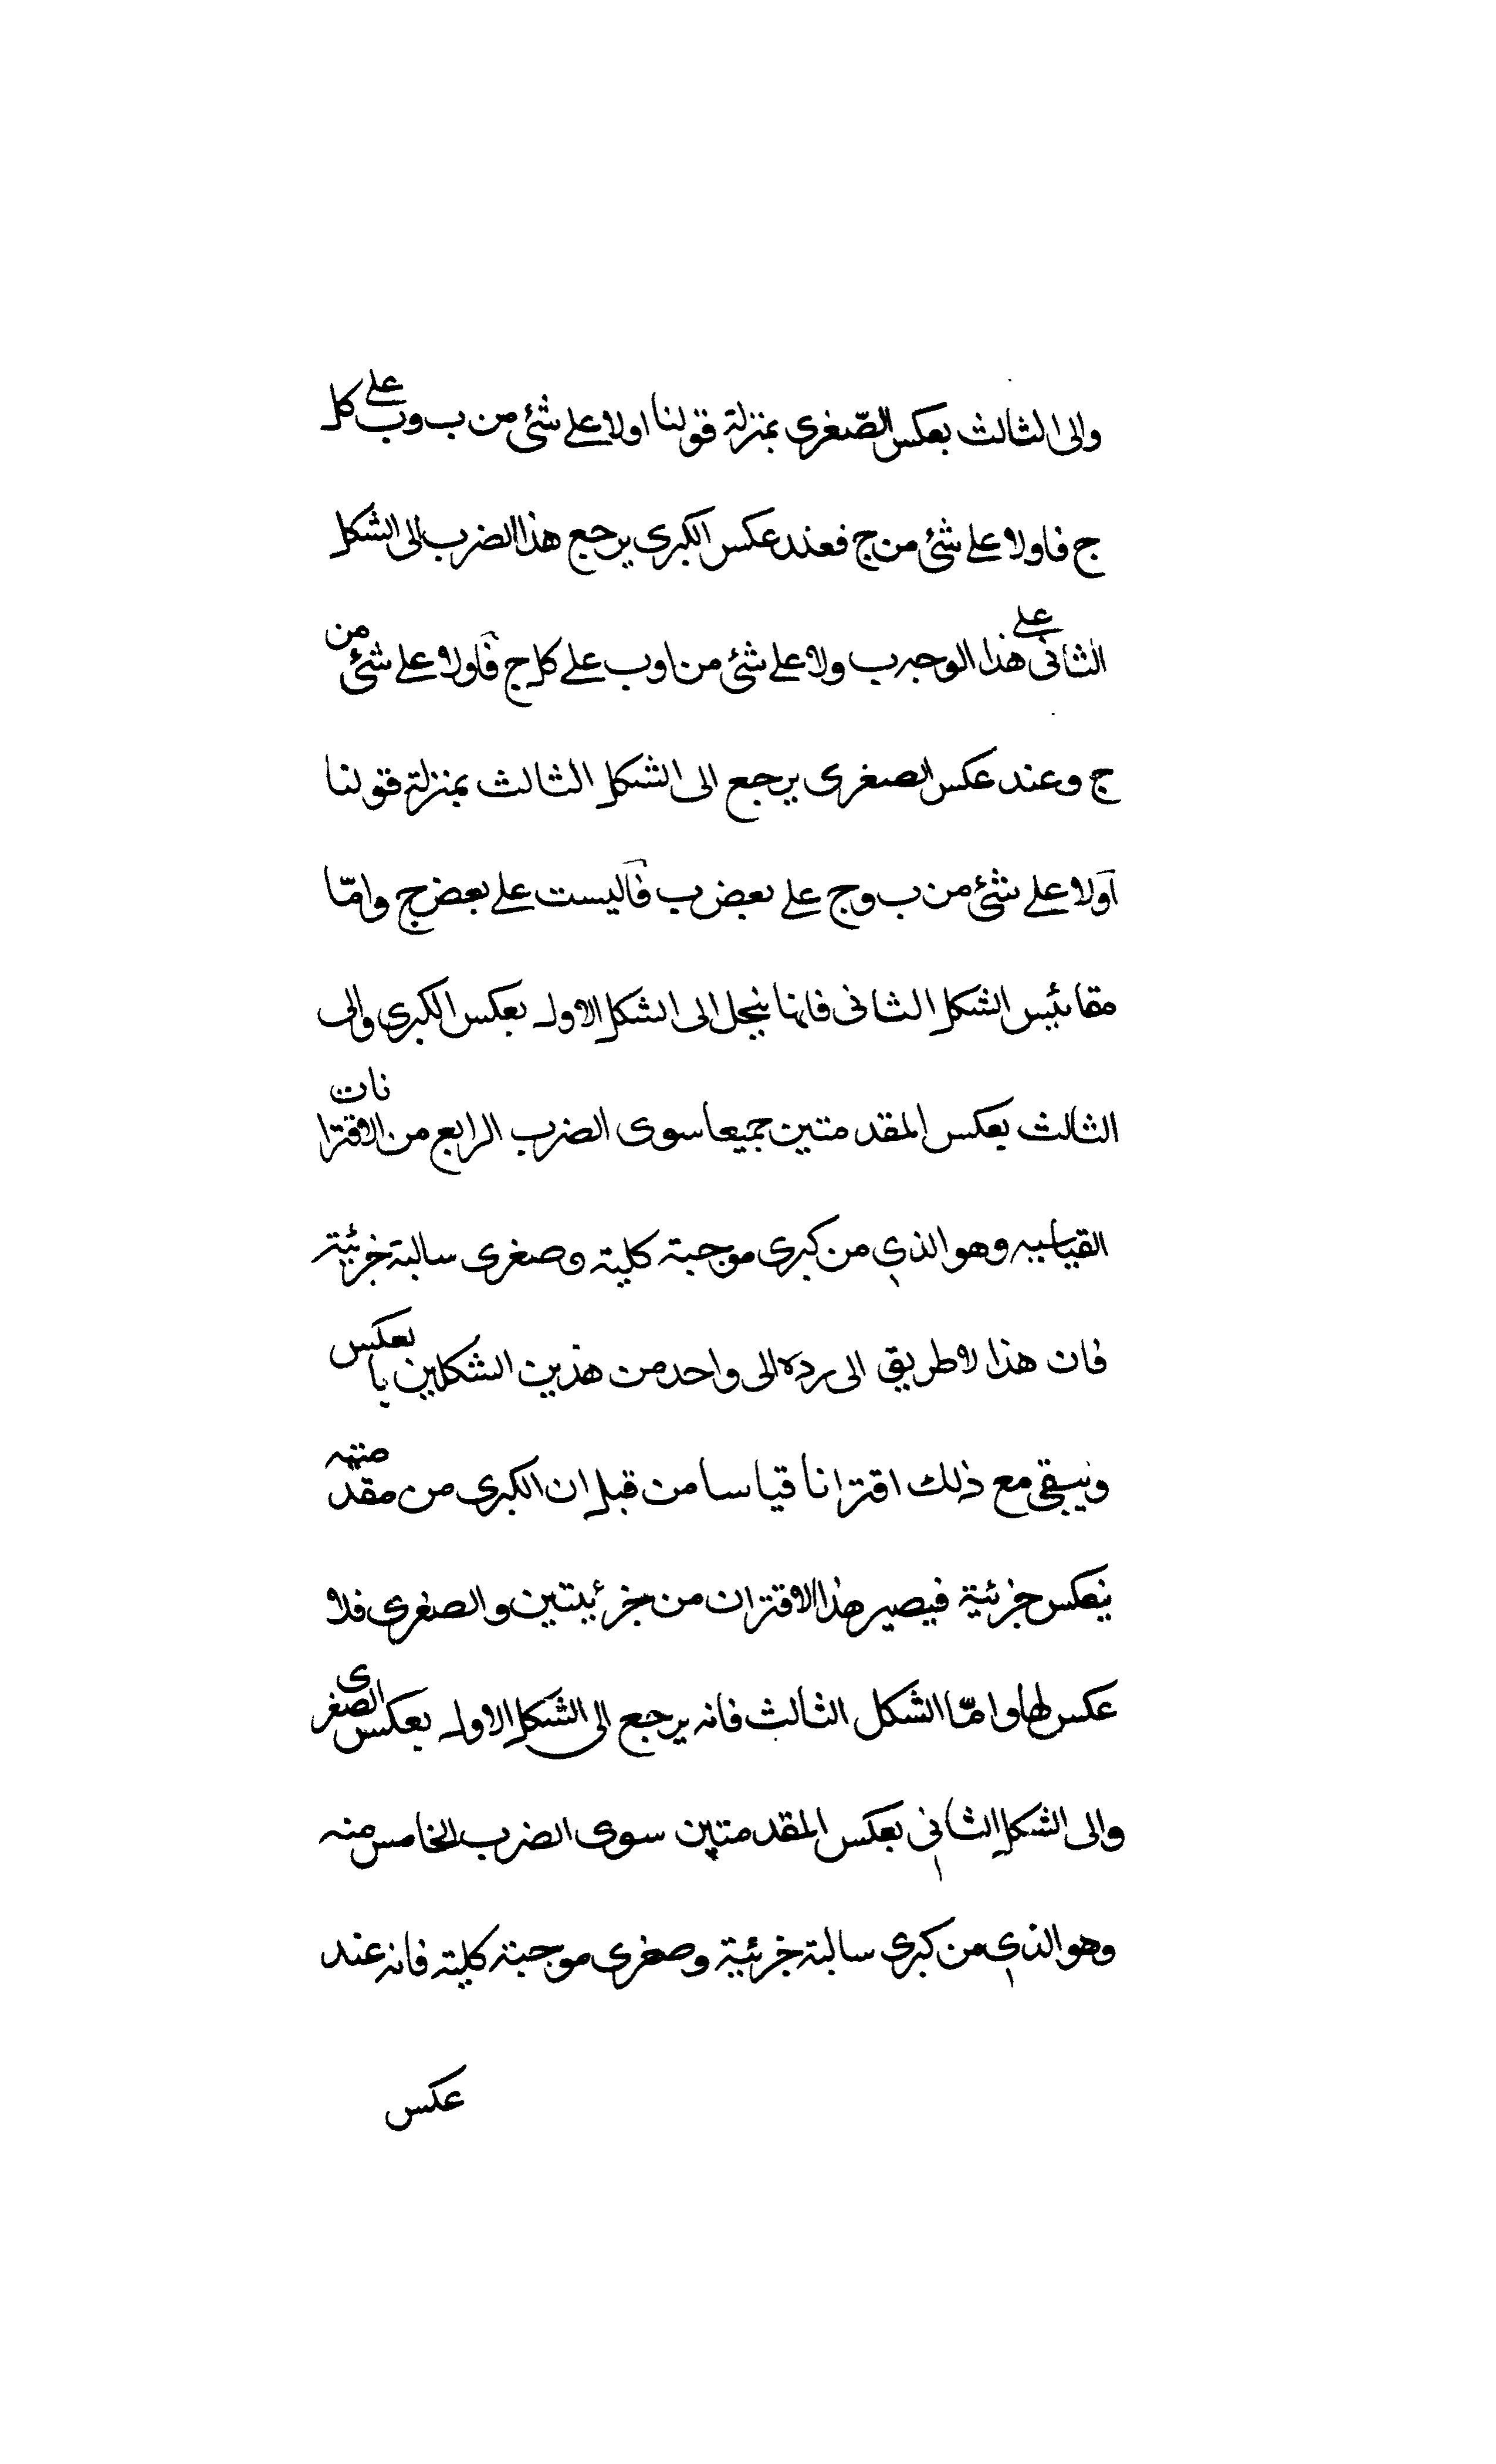 والى الثالث بعكس الصّغرى بمنزلة قولنا اولا على شئ من ب وب على كل
ج فاولا على شئ من ج فعند عكس الكبرى يرجع هذا الضرب الى الشكل
الثانى على هذا الوجه ب ولا على شئ من ا وب على كل ج فآولا على شئ من
ج وعند عكس الصغرى يرجع الى الشكل الثالث بمنزلة قولنا
آولا على شئ من ب وج على بعض ب فآليست على بعض ج وامّا
مقائيس الشكل الثانى فانها ينحل الى الشكل الاول بعكس الكبرى والى
الثالث بعكس المقدمتين جميعا سوى الضرب الرابع من الاقترانات
القياسيه وهو الذي من كبرى موجبة كلية وصغرى سالبة جزئية
فان هذا لا طريق الى رده الى واحد من هذين الشكلين بالعكس
ويبقى مع ذلك اقترانا قياسا من قبل ان الكبرى من مقدمتيه
ينعكس جزئية فيصير هذا الاقتران من جزئيتين والصغرى فلا
عكس لها وامّا الشكل الثالث فانه يرجع الى الشكل الاول بعكس الصغرى
والى الشكل الثاني بعكس المقدمتين سوى الضرب الخامس منه
وهو الذي من كبرى سالبة جزئية وصغرى موجبة كلية فانه عند
عكس